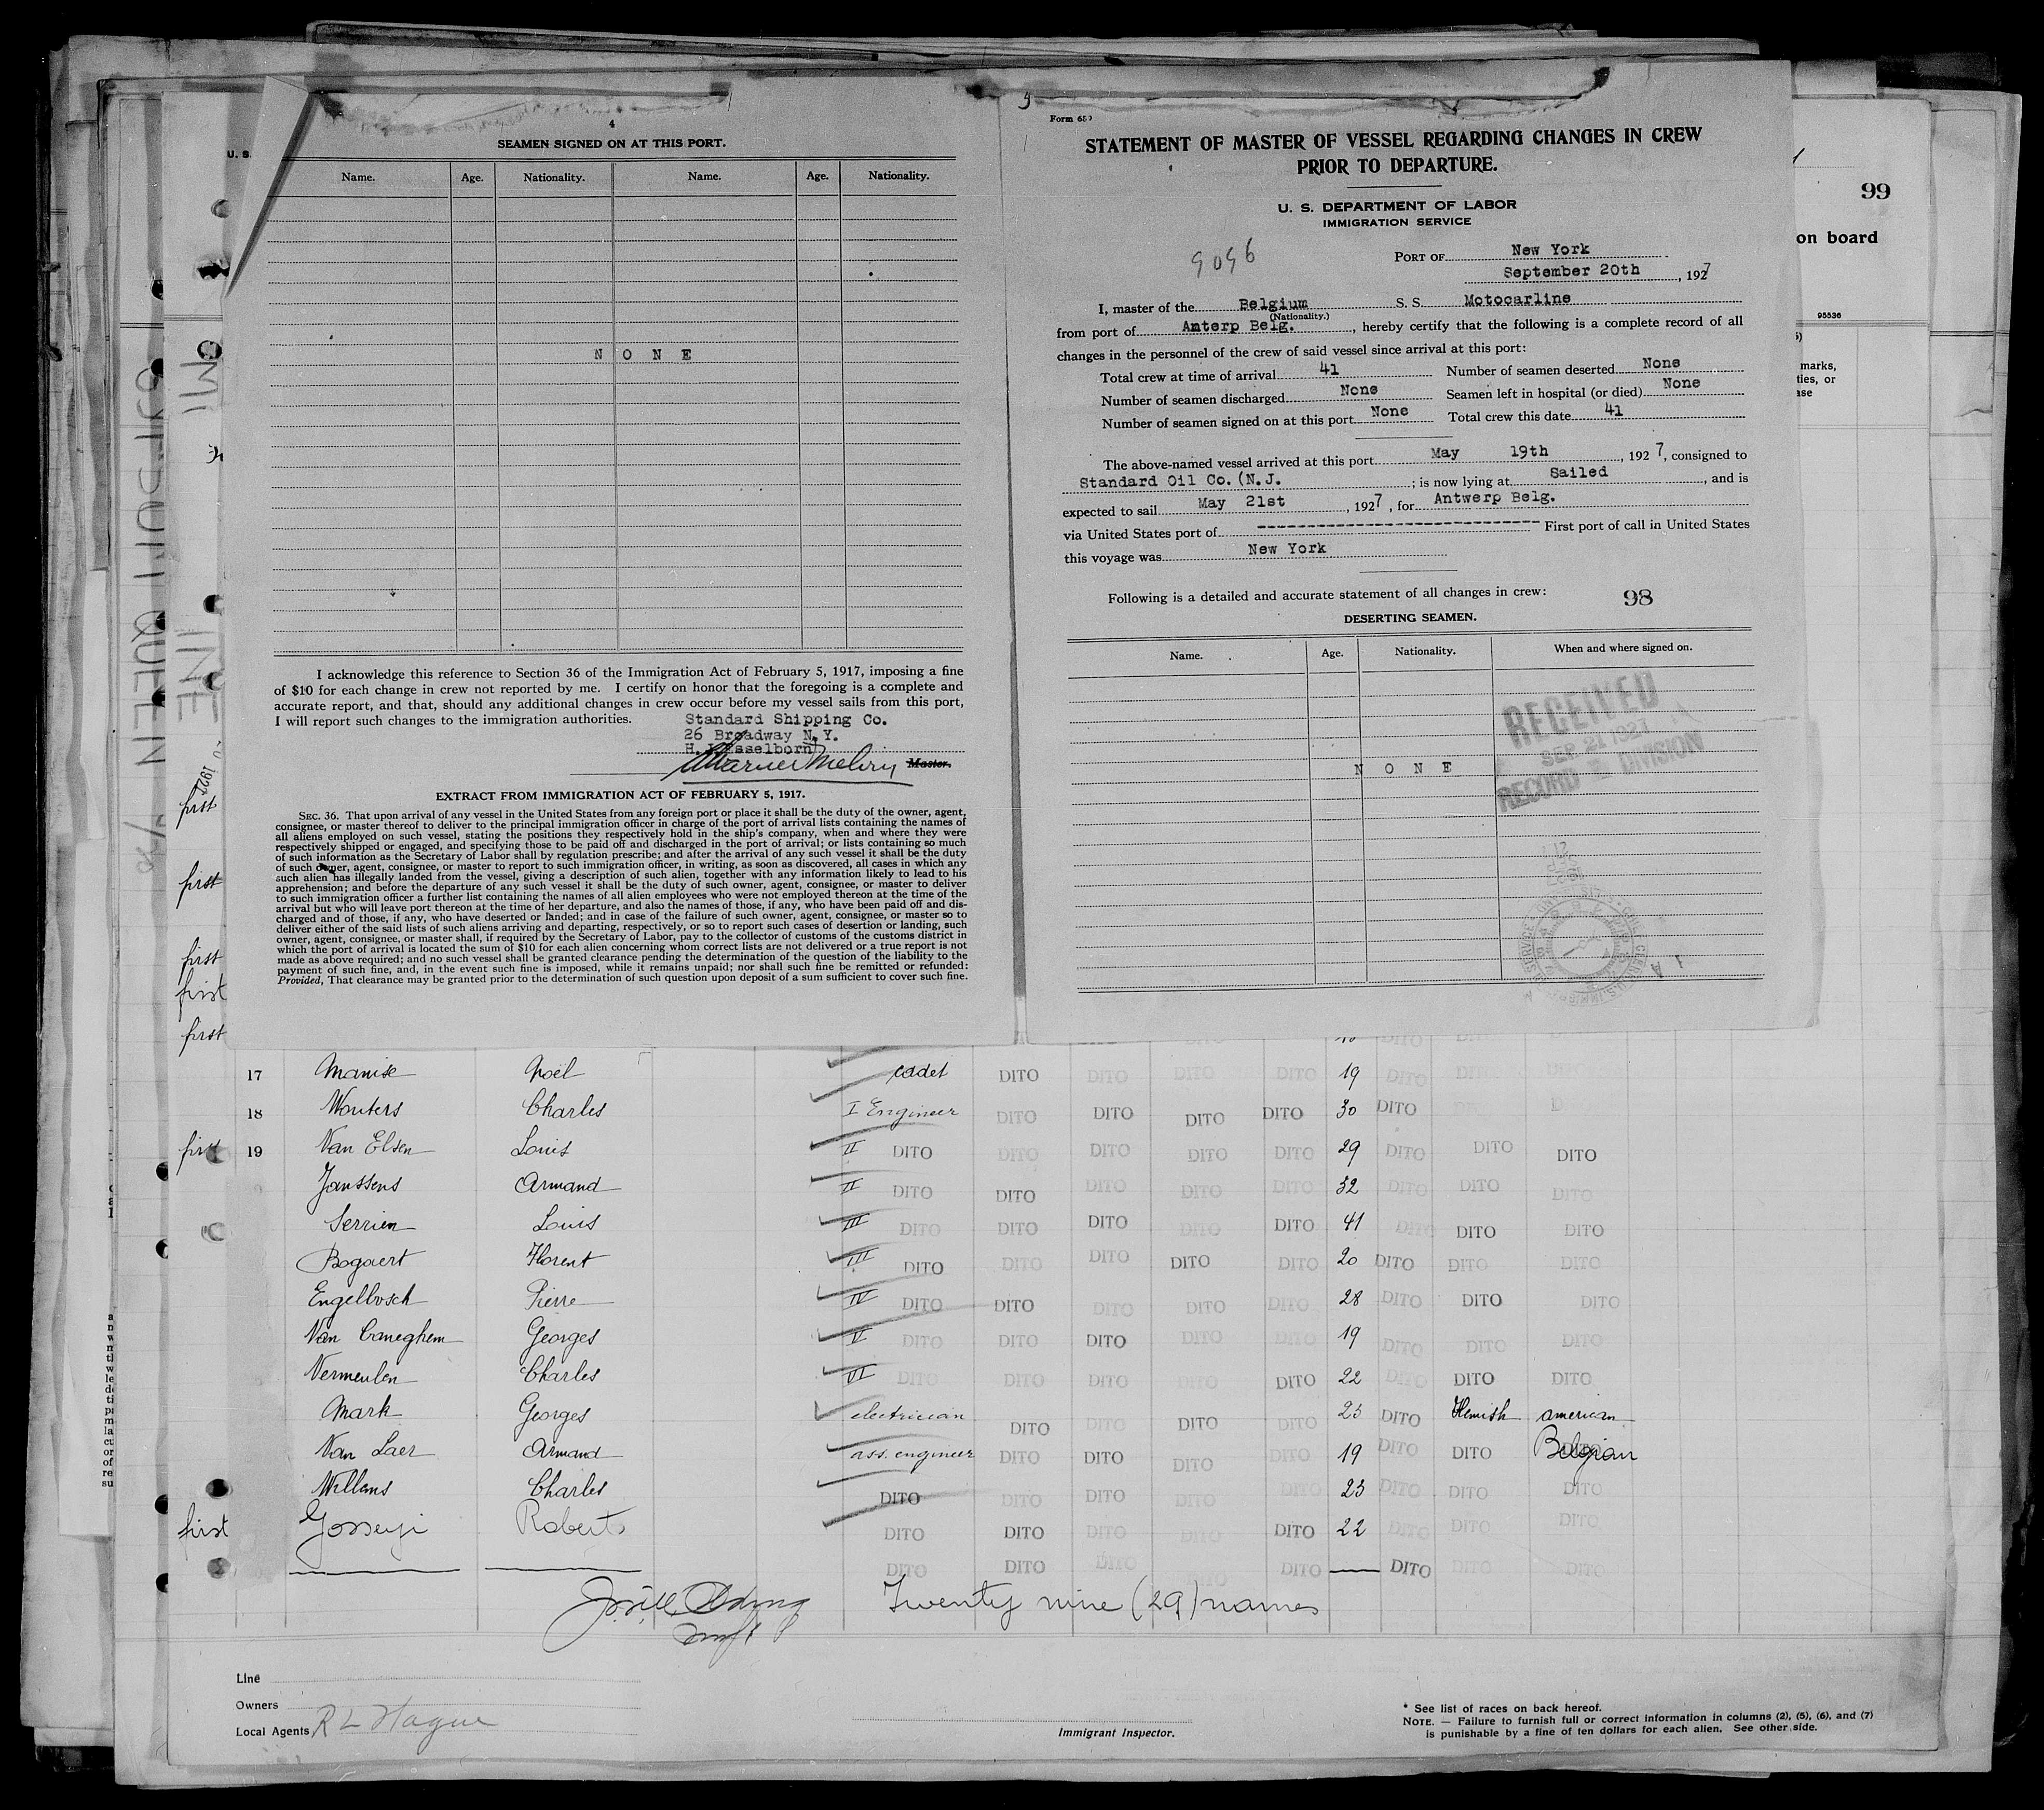 4
SEAMEN SIGNED ON AT THIS PORT.
U. S.
Name. Age. Nationality. Name. Age. Nationality.
N O N E
I acknowledge this reference to Section 36 of the Immigration Act of February 5, 1917, imposing a fine
of $10 for each change in crew not reported by me. I certify on honor that the foregoing is a complete and
accurate report, and that, should any additional changes in crew occur before my vessel sails from this port,
I will report such changes to the immigration authorities.
Standard Shipping Co.
26 Broadway N.Y.
Master.
EXTRACT FROM IMMIGRATION ACT OF FEBRUARY 5, 1917.
SEC. 36. That upon arrival of any vessel in the United States from any foreign port or place it shall be the duty of the owner, agent,
consignee, or master thereof to deliver to the principal immigration officer in charge of the port of arrival lists containing the names of
all aliens employed on such vessel, stating the positions they respectively hold in the ship's company, when and where they were
respectively shipped or engaged, and specifying those to be paid off and discharged in the port of arrival; or lists containing so much
of such information as the Secretary of Labor shall by regulation prescribe; and after the arrival of any such vessel it shall be the duty
of such owner, agent, consignee, or master to report to such immigration officer, in writing, as soon as discovered, all cases in which any
such alien has illegally landed from the vessel, giving a description of such alien, together with any information likely to lead to his
apprehension; and before the departure of any such vessel it shall be the duty of such owner, agent, consignee, or master to deliver
to such immigration officer a further list containing the names of all alien employees who were not employed thereon at the time of the
arrival but who will leave port thereon at the time of her departure, and also the names of those, if any, who have been paid off and dis-
charged and of those, if any, who have deserted or landed; and in case of the failure of such owner, agent, consignee, or master so to
deliver either of the said lists of such aliens arriving and departing, respectively, or so to report such cases of desertion or landing, such
owner, agent, consignee, or master shall, if required by the Secretary of Labor, pay to the collector of customs of the customs district in
which the port of arrival is located the sum of $10 for each alien concerning whom correct lists are not delivered or a true report is not
made as above required; and no such vessel shall be granted clearance pending the determination of the question of the liability to the
payment of such fine, and, in the event such fine is imposed, while it remains unpaid; nor shall such fine be remitted or refunded:
Provided, That clearance may be granted prior to the determination of such question upon deposit of a sum sufficient to cover such fine.
Form 689
STATEMENT OF MASTER OF VESSEL REGARDING CHANGES IN CREW
PRIOR TO DEPARTURE.
U. S. DEPARTMENT OF LABOR
IMMIGRATION SERVICE
9096
PORT OF New York
September 20th, 1927
I, master of the Belgium S. S. Motocarline
(Nationality.)
from port of Anterp Belg., hereby certify that the following is a complete record of all
changes in the personnel of the crew of said vessel since arrival at this port:
Total crew at time of arrival 41 Number of seamen deserted None
Number of seamen discharged None Seamen left in hospital (or died) None
Number of seamen signed on at this port None Total crew this date 41
The above-named vessel arrived at this port May 19th, 1927, consigned to
Standard Oil Co. (N.J. ; is now lying at Sailed, and is
expected to sail May 21st, 1927, for Antwerp Belg.
via United States port of ---------------------------- First port of call in United States
this voyage was New York
Following is a detailed and accurate statement of all changes in crew:
98
DESERTING SEAMEN.
Name. Age. Nationality. When and where signed on.
RECEIVED
SEP 21 1927
RECORD DIVISION
N O N E
99
on board
95536
marks,
ties, or
ase
first
first
first
first
first
17 Manise Noël cadet DITO DITO DITO DITO 19 DITO DITO
18 Wouters Charles I Engineer DITO DITO DITO DITO 30 DITO
first 19 Van Elsen Louis II DITO DITO DITO DITO DITO 29 DITO DITO DITO
Janssens Armand II DITO DITO DITO DITO DITO 32 DITO DITO DITO
Serrien Louis III DITO DITO DITO DITO DITO 41 DITO DITO DITO
Bogaert Florent III DITO DITO DITO DITO DITO 20 DITO DITO DITO
Engelbosch Pierre IV DITO DITO DITO DITO DITO 28 DITO DITO DITO
Van Caneghem Georges V DITO DITO DITO DITO DITO 19 DITO DITO DITO
Vermeulen Charles VI DITO DITO DITO DITO DITO 22 DITO DITO DITO
Mark Georges electrician DITO DITO DITO DITO 23 DITO Flemish american
Van Laer Armand ass. engineer DITO DITO DITO DITO 19 DITO DITO Belgian
Willems Charles DITO DITO DITO DITO DITO 23 DITO DITO DITO
first Gosseyi Roberts DITO DITO DITO DITO DITO 22 DITO DITO DITO
DITO DITO DITO DITO DITO DITO DITO DITO
Twenty nine (29) names
Line
Owners
Local Agents R L Hague
Immigrant Inspector.
* See list of races on back hereof.
NOTE. — Failure to furnish full or correct information in columns (2), (5), (6), and (7)
is punishable by a fine of ten dollars for each alien. See other side.